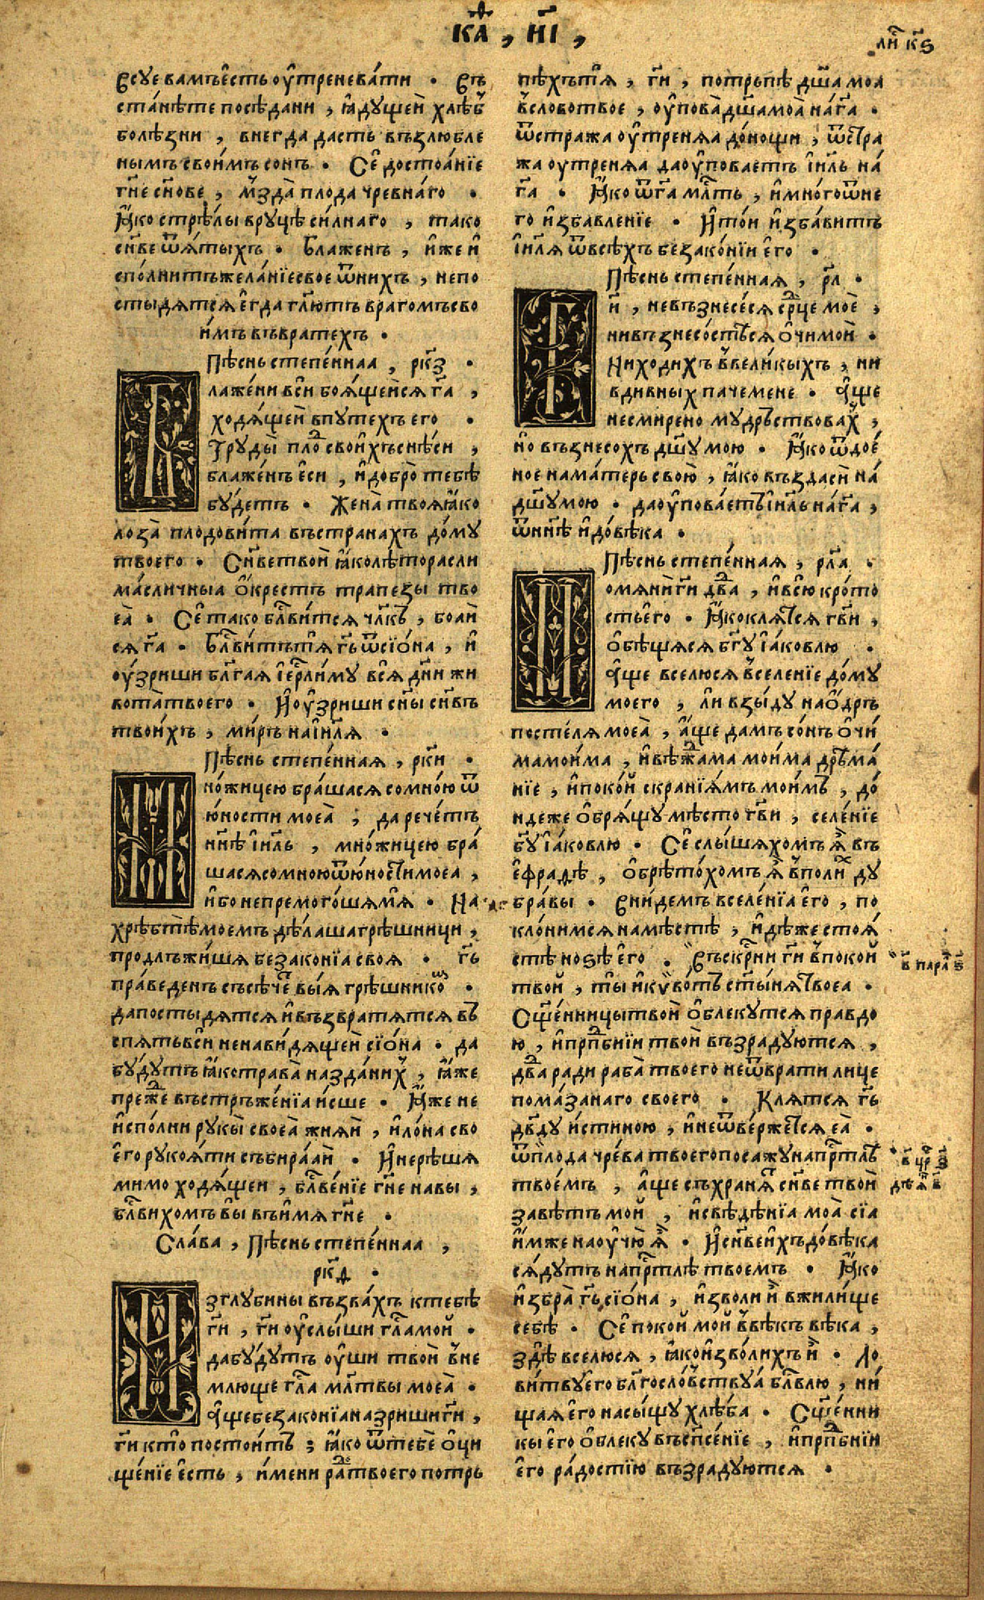 каѳ, н҃і,
ли҃ к҃ѕ
всуе вамъ єсть оутреневати . въ
станѣте посѣдани, ꙗдущей хлѣб
болѣзни, внегда дасть възлюбле
нымъ своимъ сонъ . Се достоаніе
гн҃е сн҃ове, мзда плода чревнаго .
Ꙗко стрѣлы вруцѣ силнаго, тако
сн҃ве ѿятыхъ . Блаженъ, иже и
сполнитъ желаніе свое ѿ нихъ, непо
стыдятся егда гл҃ютъ врагомъ сво
имъ въ вратехъ .
Пѣснь степеннаа, рк҃з .
Блажени вси боящеися г҃а,
ходящеи в путехъ его .
Труды плод своихъ снѣси,
блаженъ еси, и добро тебѣ
будетъ . Жена твоя ꙗко
лоза плодовита въ странахъ дому
твоего . Сн҃ве твои ꙗко лѣторасли
масличныа окрестъ трапезы тво
еа . Се тако блв҃ится чл҃къ, боаи
ся г҃а . Блв҃итъ тя гь҃ ѿ сіона, и
оузриши бл҃гая іерл҃иму вся дн҃и жи
вота твоего . И оузриши сн҃ы сн҃въ
твоихъ, миръ на іил҃я .
Пѣснь степенная, рк҃и .
Множицею брашася со мною ѿ
юности моеа ; да речетъ
нн҃ѣ іил҃ь, множицею бра
шася со мною ѿ юности моеа,
ибо не премогошя мя . На
хребтѣ моемъ дѣлаша грѣшници,
продлъжишя безаконіа своя . гь҃
праведенъ съсѣче выя грѣшником .
да постыдятся и възвратятся въ
спять вси ненавидящеи сіона . да
будутъ ꙗко трава на зданих, ꙗже
преже въстръженіа исше . Ꙗже не
исполни рукы своеа жняи, и лона сво
его рукояти събираяи . И не рѣшя
мимо ходящеи, блв҃еніе гн҃е на вы,
блв҃ихомъ вы въ имя гн҃е .
Слава, Пѣснь степеннаа,
рк҃ѳ .
Из глубины възвахъ к тебѣ
г҃и, г҃и оуслыши гл҃а мой .
да будутъ оуши твои вне
млюще гл҃а мл҃твы моеа .
Аще безаконіа назриши г҃и,
г҃и кто постоитъ ; ꙗко ѿ тебе оци
щеніе есть, имени рад твоего потръ
пѣхъ тя, г҃и, потръпѣ дш҃а моа
в слово твое, оупова дш҃а моа на г҃а .
ѿ стража оутреняа до нощи, ѿ стра
жа оутреняа да оуповаетъ іил҃ь на
г҃а . Ꙗко ѿ г҃а мл҃ть, и много ѿ не
го избавленіе . И той избавитъ
іил҃я ѿ всѣхъ безаконіи его .
Пѣснь степенная, рл҃ .
Г҃и, не възнесеся ср҃це мое,
ни възнесостѣся очи мои .
Ни ходихъ в великыхъ, ни
в дивных паче мене . Аще
не смирено мудръствовах,
но възнесохъ дш҃у мою . Ꙗко ѿдое
ное на матерь свою, ꙗко въздаси на
дш҃у мою . да оуповаетъ іил҃ь на г҃а,
ѿ нн҃ѣ и до вѣка .
Пѣснь степенная, рл҃а .
Помяни г҃и дв҃а, и всю крото
сть его . Ꙗко клятся гв҃и,
обѣщяся бг҃у іаковлю .
Аще вселюся в селеніе дому
моего, ли взыду на одръ
постеля моеа, аще дамъ сонъ очи
ма моима, и вѣжама моима дрѣма
ніе, и покой скраніямъ моимъ, до
идеже обрящу мѣсто гв҃и, селеніе
бг҃у іаковлю . Се слышяхомъ я въ
ефрадѣ, обрѣтохомъ я в поли ду
бравы . Внидемъ в селеніа его, по
клонимся на мѣстѣ, идѣже стоя
стѣ нозѣ его . Въскрн҃и г҃и в покой
твой, ты и кивотъ ст҃ыня твоеа .
Сщ҃енницы твои облекутся правдо
ю, и прп҃бніи твои възрадуются,
дв҃а ради раба твоего не ѿврати лице
помазанаго своего . Клятся гь҃
дв҃ду истиною, и не ѿвержется еа .
ѿ плода чрева твоего посажу на пр҃тлѣ
твоемъ, аще съхраня сн҃ве твои
завѣтъ мой, и свѣдѣніа моа сіа
имже научю я . И сн҃ве ихъ до вѣка
сядутъ на пр҃тлѣ твоемъ . Ꙗко
избра гь҃ сіона, изволи и в жилище
себѣ . Се покой мой в вѣкъ вѣка,
здѣ вселюся, ꙗко изволихъ и . Ло
витву его бл҃гословствуа блв҃лю, ни
щая его насыщу хлѣба . Сщ҃енни
кы его облеку въ спс҃еніе, и прп҃бніи
его радостію възрадуются .
в҃ парл҃ ѕ҃